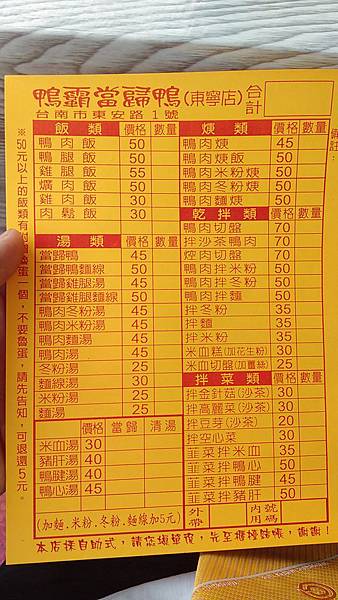 鴨霸當歸鴨(東寧店)
台南市東安路1號
合計
飯類 價格 數量
鴨肉飯 50
鴨腿飯 50
雞腿飯 55
爌肉飯 50
雞肉飯 30
肉鬆飯 30
湯類 價格 數量
當歸鴨 45
當歸鴨麵線 50
當歸雞腿湯 45
當歸雞腿麵線 50
鴨肉冬粉湯 45
鴨肉米粉湯 45
鴨肉麵湯 45
鴨肉湯 45
冬粉湯 25
麵線湯 30
米粉湯 25
麵湯 25
價格 當歸 清湯
米血湯 30
豬肝湯 40
鴨腱湯 40
鴨心湯 45
(加麵.米粉.冬粉.麵線加5元)
焿類 價格 數量
鴨肉焿 45
鴨肉焿飯 50
鴨肉米粉焿 50
鴨肉冬粉焿 50
鴨肉麵焿 50
乾拌類 價格 數量
鴨肉切盤 70
拌沙茶鴨肉 70
焢肉切盤 70
鴨肉拌米粉 50
鴨肉拌冬粉 50
鴨肉拌麵 50
拌冬粉 35
拌麵 35
拌米粉 35
米血糕(加花生粉) 30
米血切盤(加薑絲) 25
拌菜類 價格 數量
拌金針菇(沙茶) 30
拌高麗菜(沙茶) 30
拌豆芽(沙茶) 20
拌空心菜 30
韮菜拌米血 35
韮菜拌鴨心 50
韮菜拌鴨腱 45
韮菜拌豬肝 50
外帶 內用 號碼
※50元以上的飯類有附魯蛋一個,不要魯蛋,請先告知,可退還5元。
備註:
本店採自助式,請您填單後,先至櫃檯結帳,謝謝!